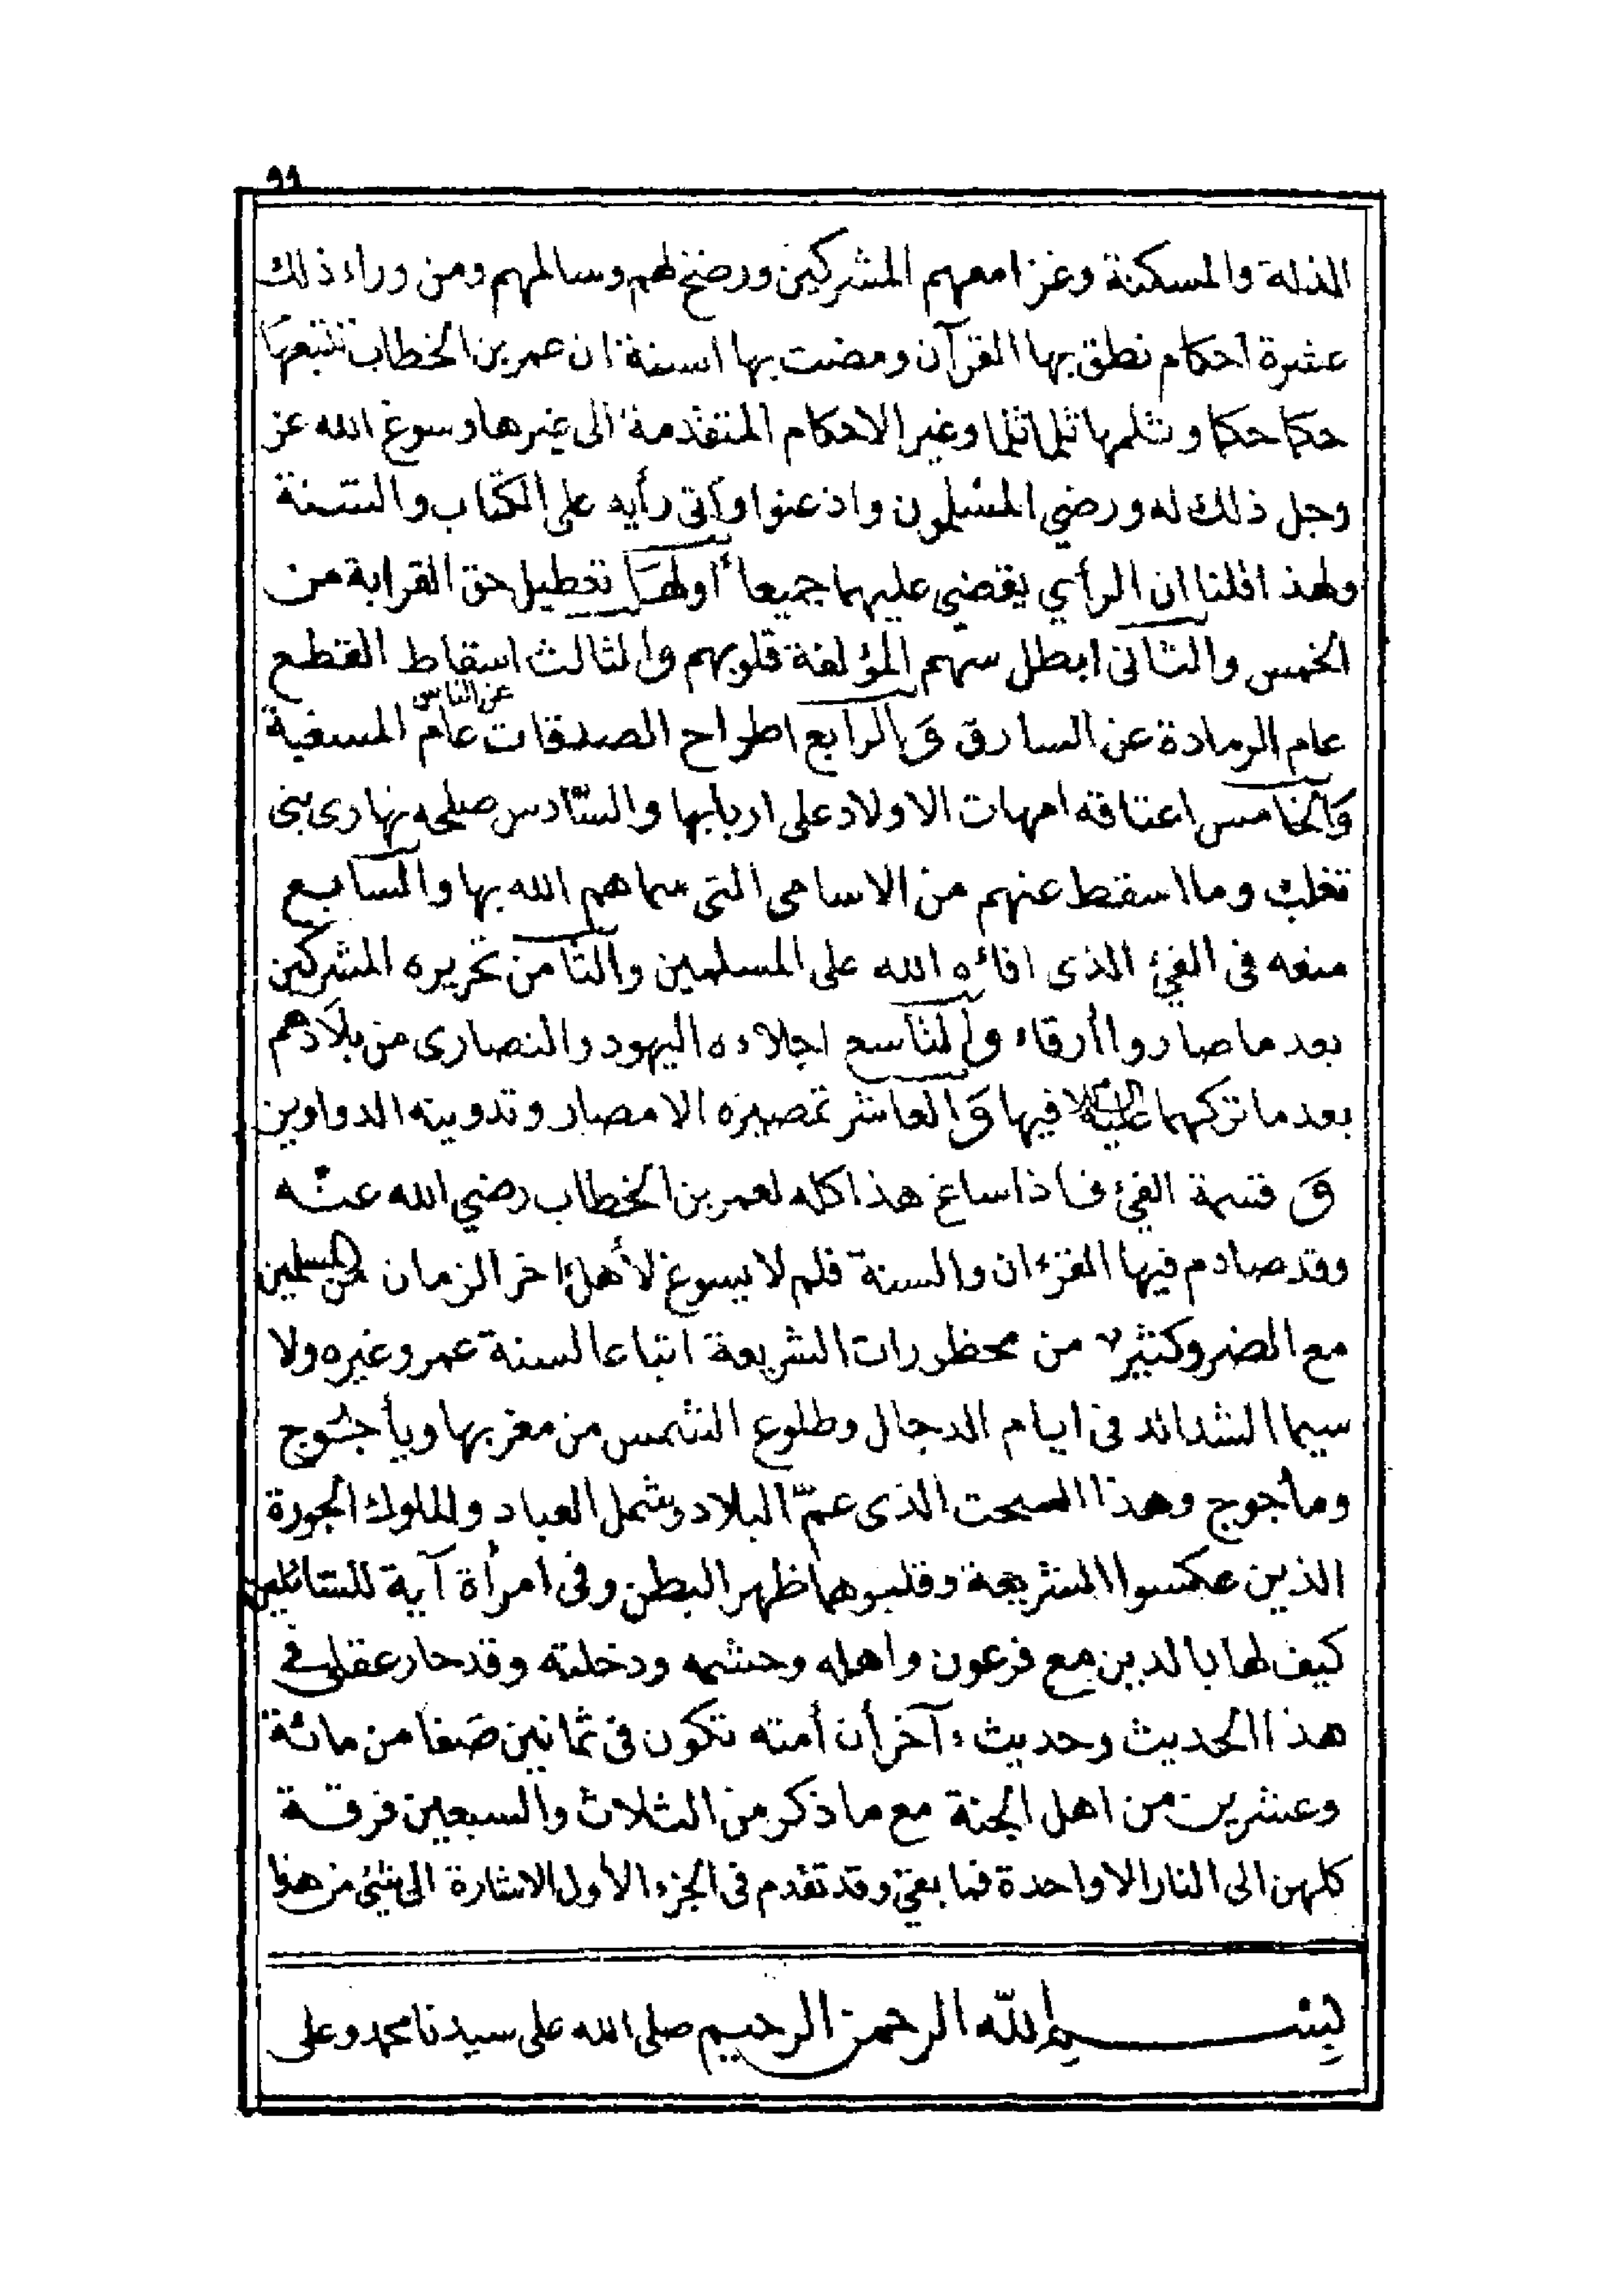 ٩٩
الذلة والمسكنة وغزا معهم المشركين ورضخ لهم وسالمهم ومن وراء ذلك
عشرة احكام نطق بها القرآن ومضت بها السنة ان عمر بن الخطاب تتبعها
حكما حكما وثلمها ثلما ثلما وغير الاحكام المتقدمة الى غيرها وسوغ الله عز
وجل ذلك له ورضي المسلمون واذعنوا وأتى رأيه على الكتاب والسنة
ولهذا قلنا ان الرأي يقضي عليهما جميعا أولها تعطيل حق القرابة من
الخمس والثانى ابطل سهم المؤلفة قلوبهم والثالث اسقاط القطع
عام الرمادة عن السارق وَالرابع اطراح الصدقات عن الناس عام المسغبة
وَالخامس اعتاقه امهات الاولاد على اربابها والسّادس صلحه نهارى بنى
تغلب وما اسقط عنهم من الاسامى التى سماهم الله بها والسابع
منعه فى الفئ الذى افائه الله على المسلمين والثامن تحريره المشركين
بعد ما صاروا أرقاء والتاسع اجلاءه اليهود والنصارى من بلادهم
بعد ما تركهما عليه السلام فيها وَالعاشر تمصيره الامصار وتدوينه الدواوين
وَ قسمة الفئ فاذا ساغ هذا كله لعمر بن الخطاب رضي الله عنه
وقد صادم فيها القرءان والسنة فلم لا يسوغ لأهل ءاخر الزمان من المسلمين
مع الضر وكثير من محظورات الشريعة اتباعا لسنة عمر وغيره ولا
سيما الشدائد فى ايام الدجال وطلوع الشمس من مغربها ويأجُوج
ومأجوج وهذا السحت الذى عمّ البلاد وشمل العباد والملوك الجورة
الذين عكسوا الشريعة وقلبوها ظهر البطن وفى امرأة آية للسائلين
كيف لها بالدين مع فرعون واهله وحشمه ودخلته وقد حار عقلى في
هذا الحديث وحديث ءآخر أن أمته تكون فى ثمانين صَفا من مائة
وعشرين من اهل الجنة مع ما ذكر من الثلاث والسبعين فرقة
كلهن الى النار الا واحدة فما بقي وقد تقدم فى الجزء الأول الاشارة الى شئ من هذا
بِسْم اللّه الرحمن الرحيم صلى الله على سيدنا محمد وعلى